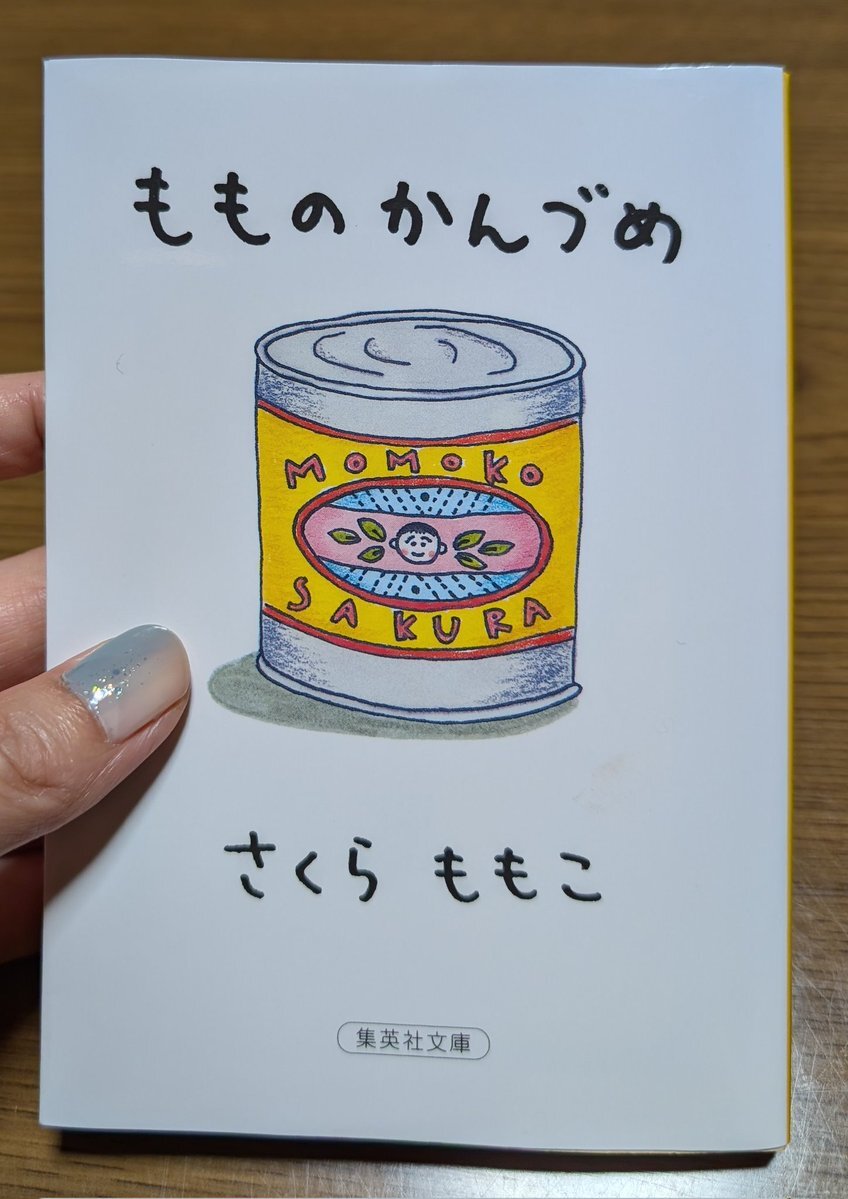 もものかんづめ
MOMOKO
SAKURA
さくら ももこ
集英社文庫